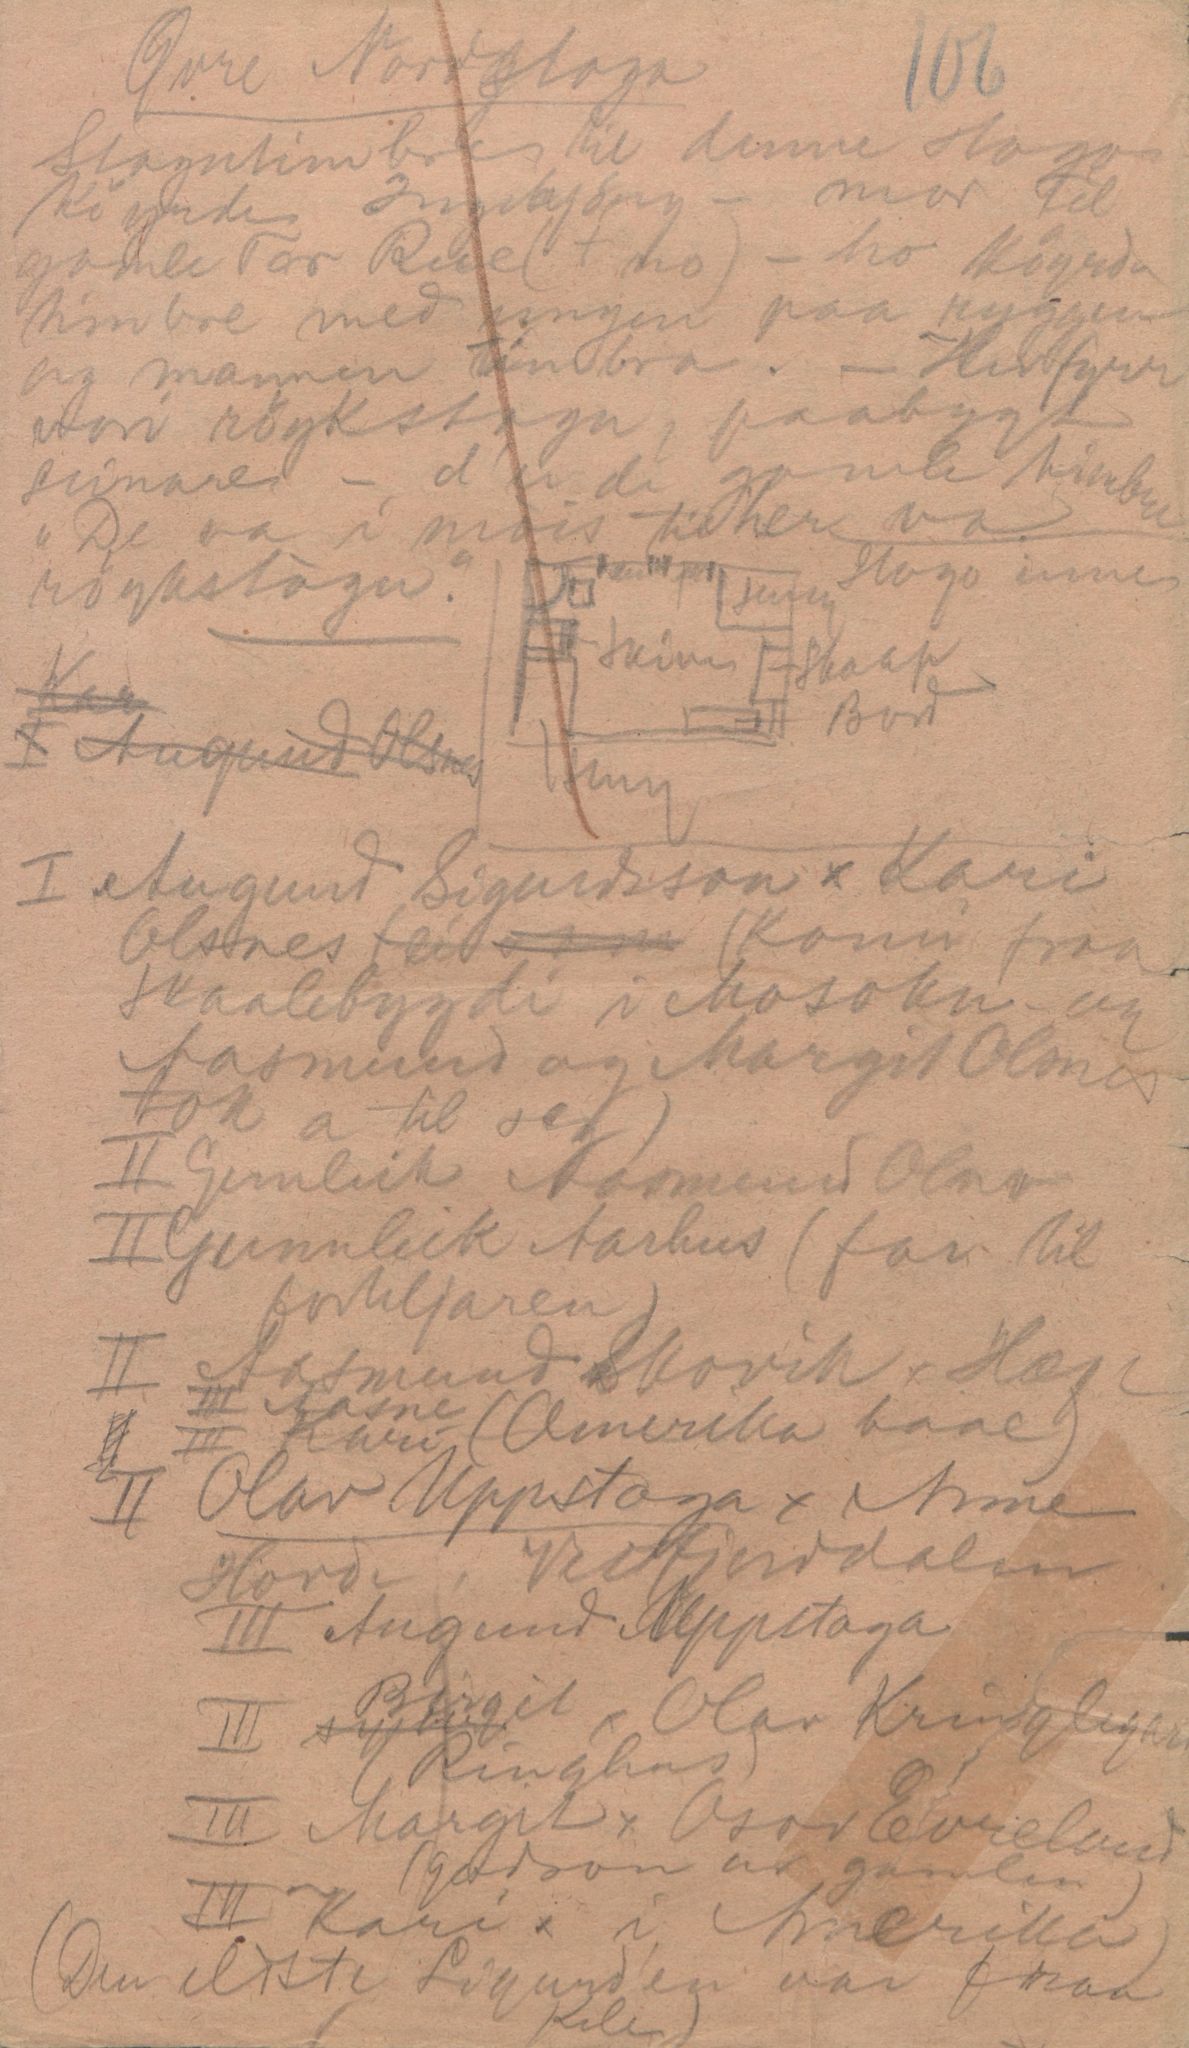 Øvre Nordstoga 106
Stogutimbre til denne stogo
köyrde Ingebjörg - mor til
gamle Tor Rue († no) - ho köyrde
timbre med ungen paa ryggen
og mannen timbra. - Her fyrr
vori röykstogu, paabygt
seinare - d'er de gamle timbre
"De va i mois ti her va
röykstogu."
Stogo inne
Seng
Skive
Skaap
Bord
Seng
Kar
I Augund Olsnes
I Augund Sigurdsson x Kari
Olsnes (Kom fraa
Skaalebygdi i Mosokn og
Aasmund og Margit Olsnes
tok a til seg)
II Gunleik Aasmund Olsnes
II Gunnleik Aarhus (far til
forteljaren)
II Aasmund Skorvik x Hæge
III Aasne
III Kari (Amerika baae)
II Olav Uppstoga x Anne
Hovde, Vestfjorddalen
III Augund Uppstoga
III Birgit x Olav Kringlegard
(Ringhus)
III Margit x Osov Øvreland
(godson av gamlen)
III Kari x i Amerika)
(Den eldste Sigurden var fraa
Kile)